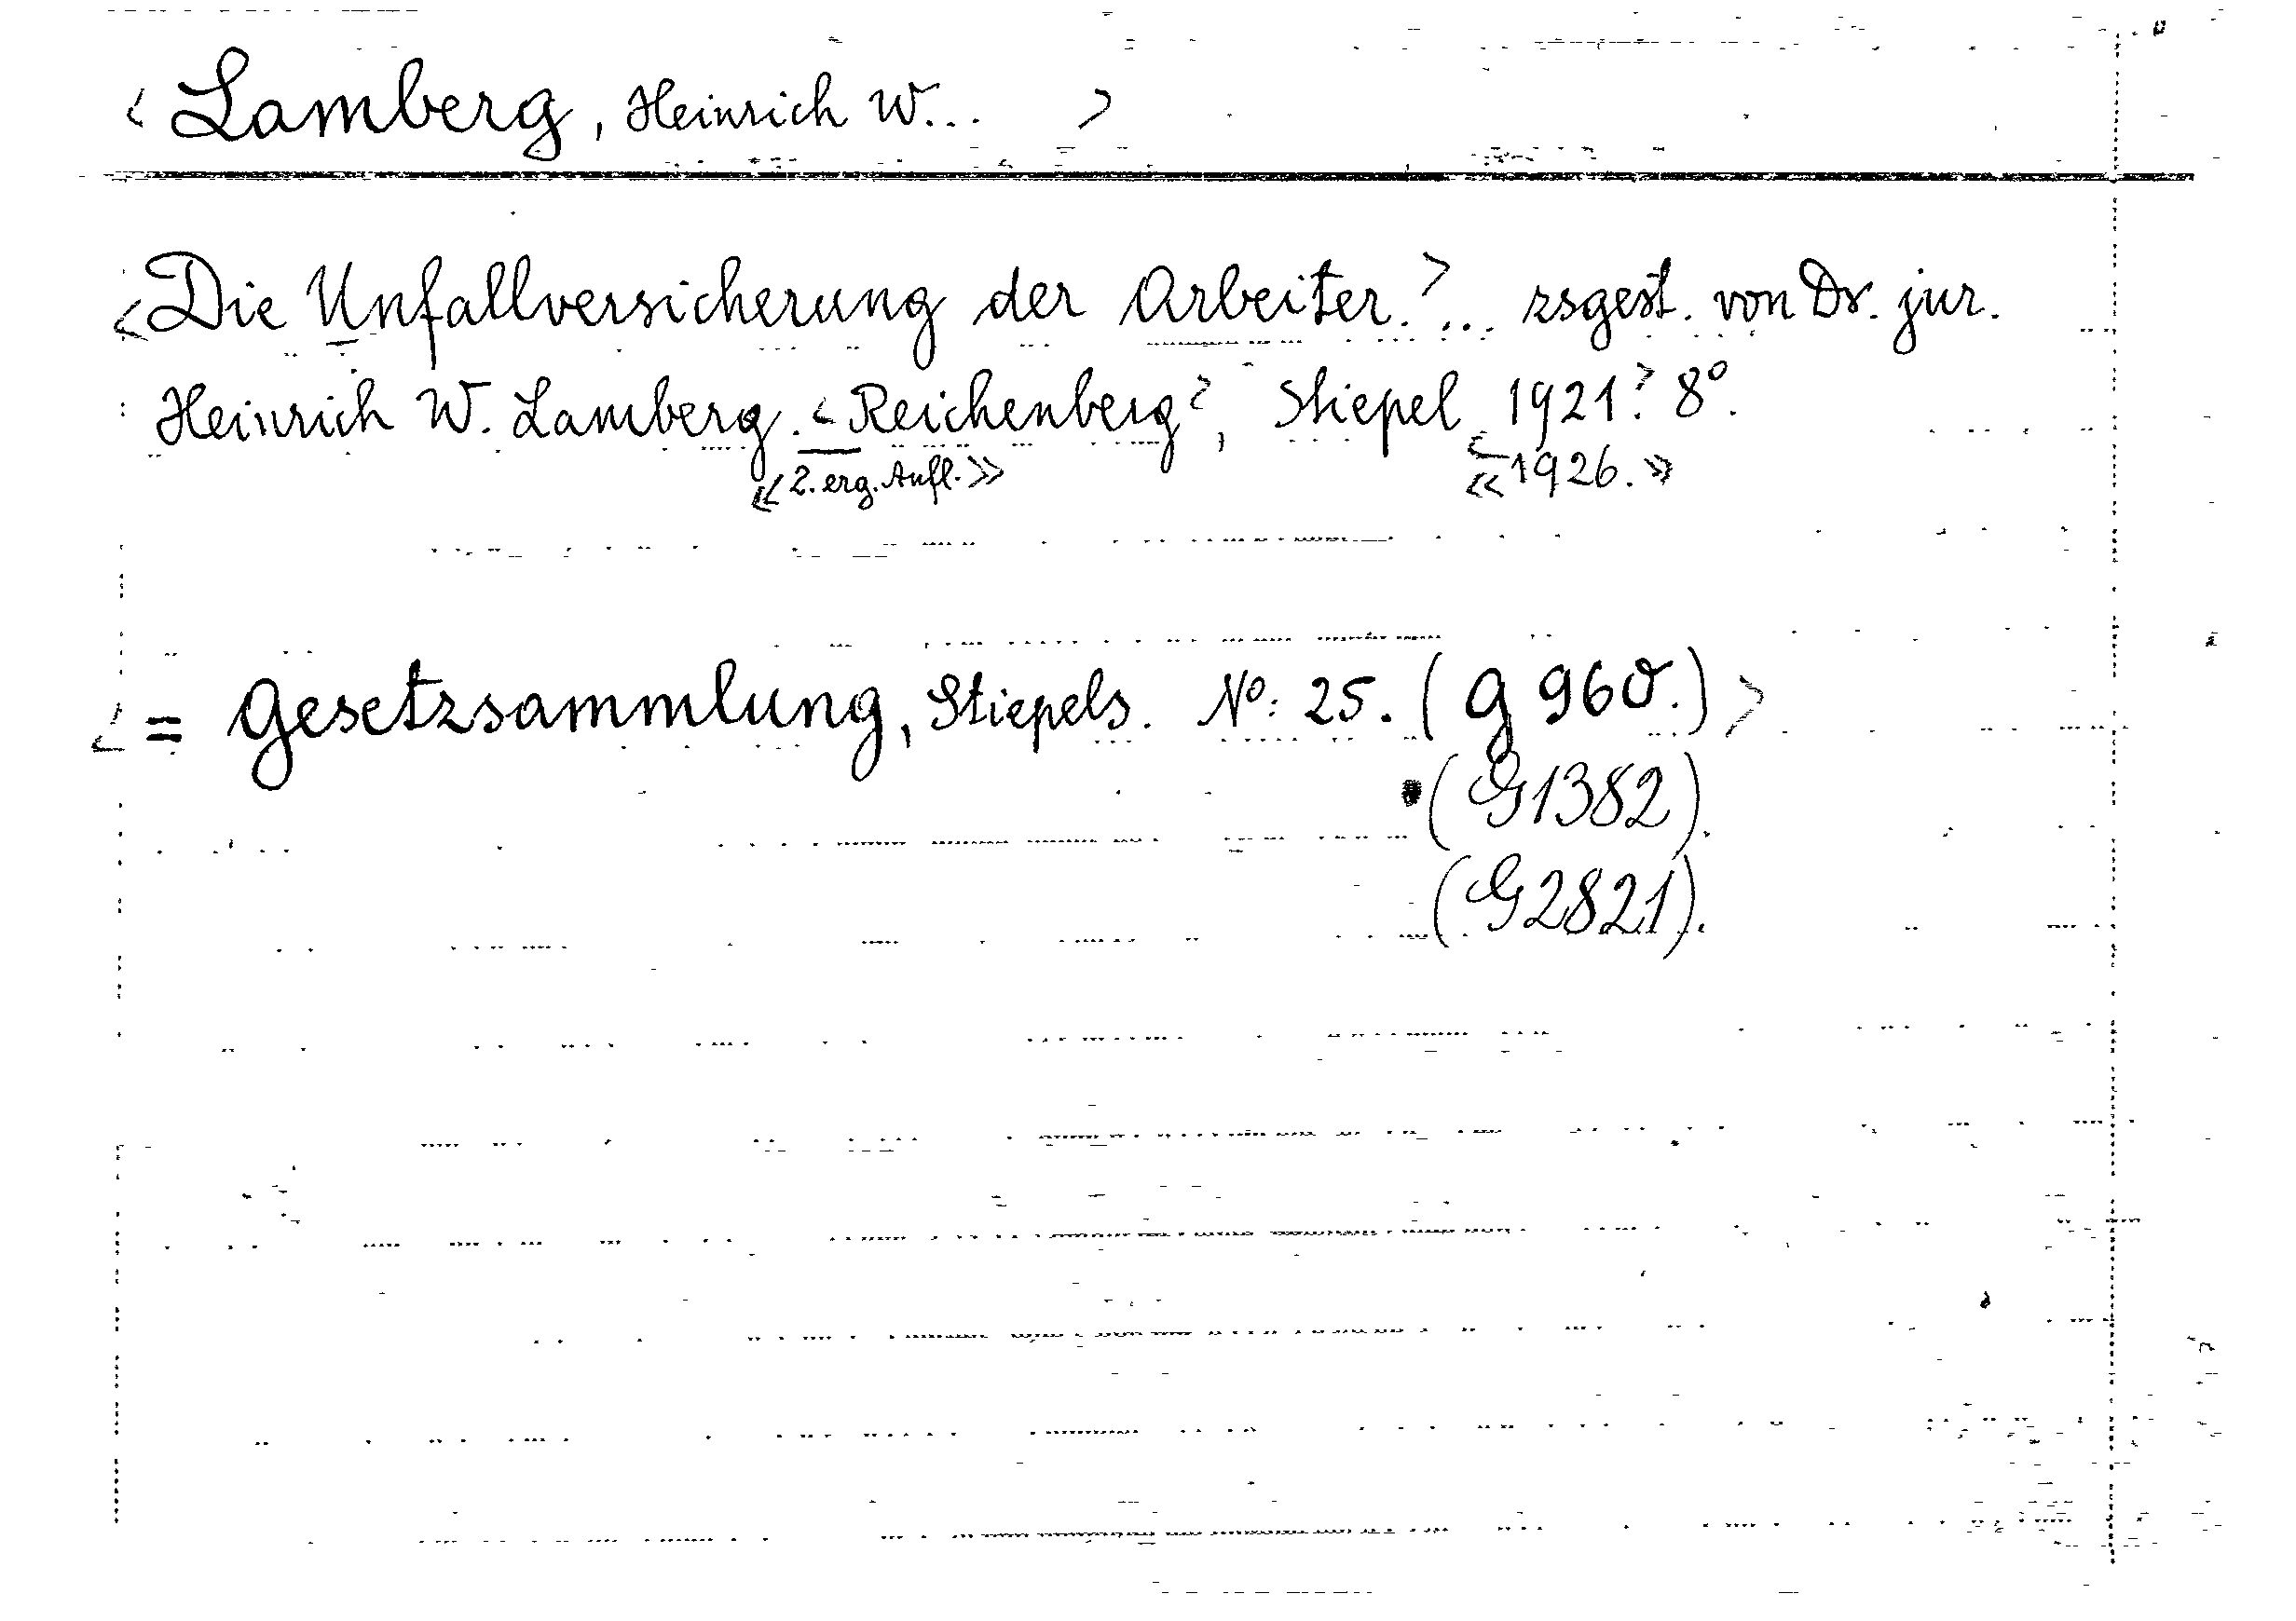 < Lamberg, Heinrich W... >
<Die Unfallversicherung der Arbeiter.> ... zsgest. von Dr. jur.
Heinrich W. Lamberg. <Reichenberg>, Stiepel <1921.> 8°.
<<2. erg. Aufl.>> <<1926.>>
< = Gesetzsammlung, Stiepels. No: 25. (G 960.) >
(G1382).
(G2821).